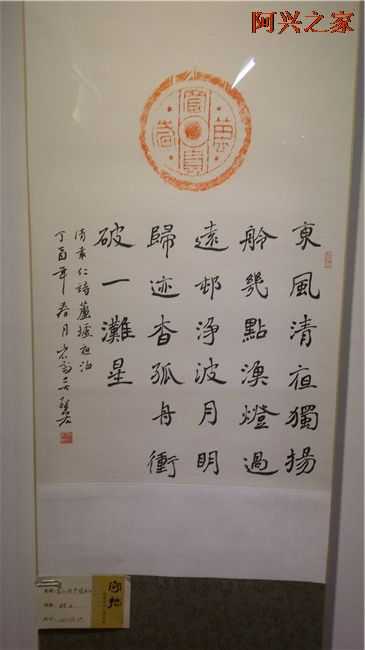 阿兴之家
富貴萬歲
東風清夜獨揚
舲幾點漁燈過
遠邨淨波月明
歸迹杳孤舟衝
破一灘星
仁詩蘆墟夜泊
丁酉年春月